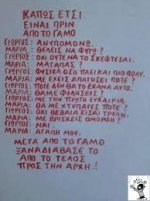 ΚΑΠΩΣ ΕΤΣΙ
ΕΙΝΑΙ ΠΡΙΝ
ΑΠΟ ΤΟ ΓΑΜΟ
ΓΙΩΡΓΟΣ: ΑΝΥΠΟΜΟΝΩ.
ΜΑΡΙΑ: ΘΕΛΕΙΣ ΝΑ ΦΥΓΩ?
ΓΙΩΡΓΟΣ: ΟΧΙ ΟΥΤΕ ΝΑ ΤΟ ΣΚΕΦΤΕΣΑΙ.
ΜΑΡΙΑ: Μ'ΑΓΑΠΑΣ?
ΓΙΩΡΓΟΣ: ΦΥΣΙΚΑ ΟΣΟ ΠΑΕΙ ΚΑΙ ΠΙΟ ΠΟΛΥ.
ΜΑΡΙΑ: ΜΕ ΕΧΕΙΣ ΑΠΑΤΗΣΕΙ ΠΟΤΕ?
ΓΙΩΡΓΟΣ: ΠΟΤΕ ΔΕΝ ΘΑ ΤΟ ΕΚΑΝΑ ΑΥΤΟ.
ΜΑΡΙΑ: ΘΑ ΜΕ ΦΙΛΗΣΕΙΣ?
ΓΙΩΡΓΟΣ: ΜΕ ΤΗΝ ΠΡΩΤΗ ΕΥΚΑΙΡΙΑ.
ΜΑΡΙΑ: ΘΑ ΜΕ ΧΤΥΠΑΓΕΣ ΠΟΤΕ?
ΓΙΩΡΓΟΣ: ΟΧΙ ΒΕΒΑΙΑ ΕΙΣΑΙ ΤΡΕΛΗ.
ΜΑΡΙΑ: ΜΕ ΒΡΙΣΚΕΙΣ ΟΜΟΡΦΗ?
ΓΙΩΡΓΟΣ: ΝΑΙ
ΜΑΡΙΑ: ΑΓΑΠΗ ΜΟΥ.
ΜΕΤΑ ΑΠΟ ΤΟ ΓΑΜΟ
ΞΑΝΑΔΙΑΒΑΣΕ ΤΟ
ΑΠΟ ΤΟ ΤΕΛΟΣ
ΠΡΟΣ ΤΗΝ ΑΡΧΗ.!